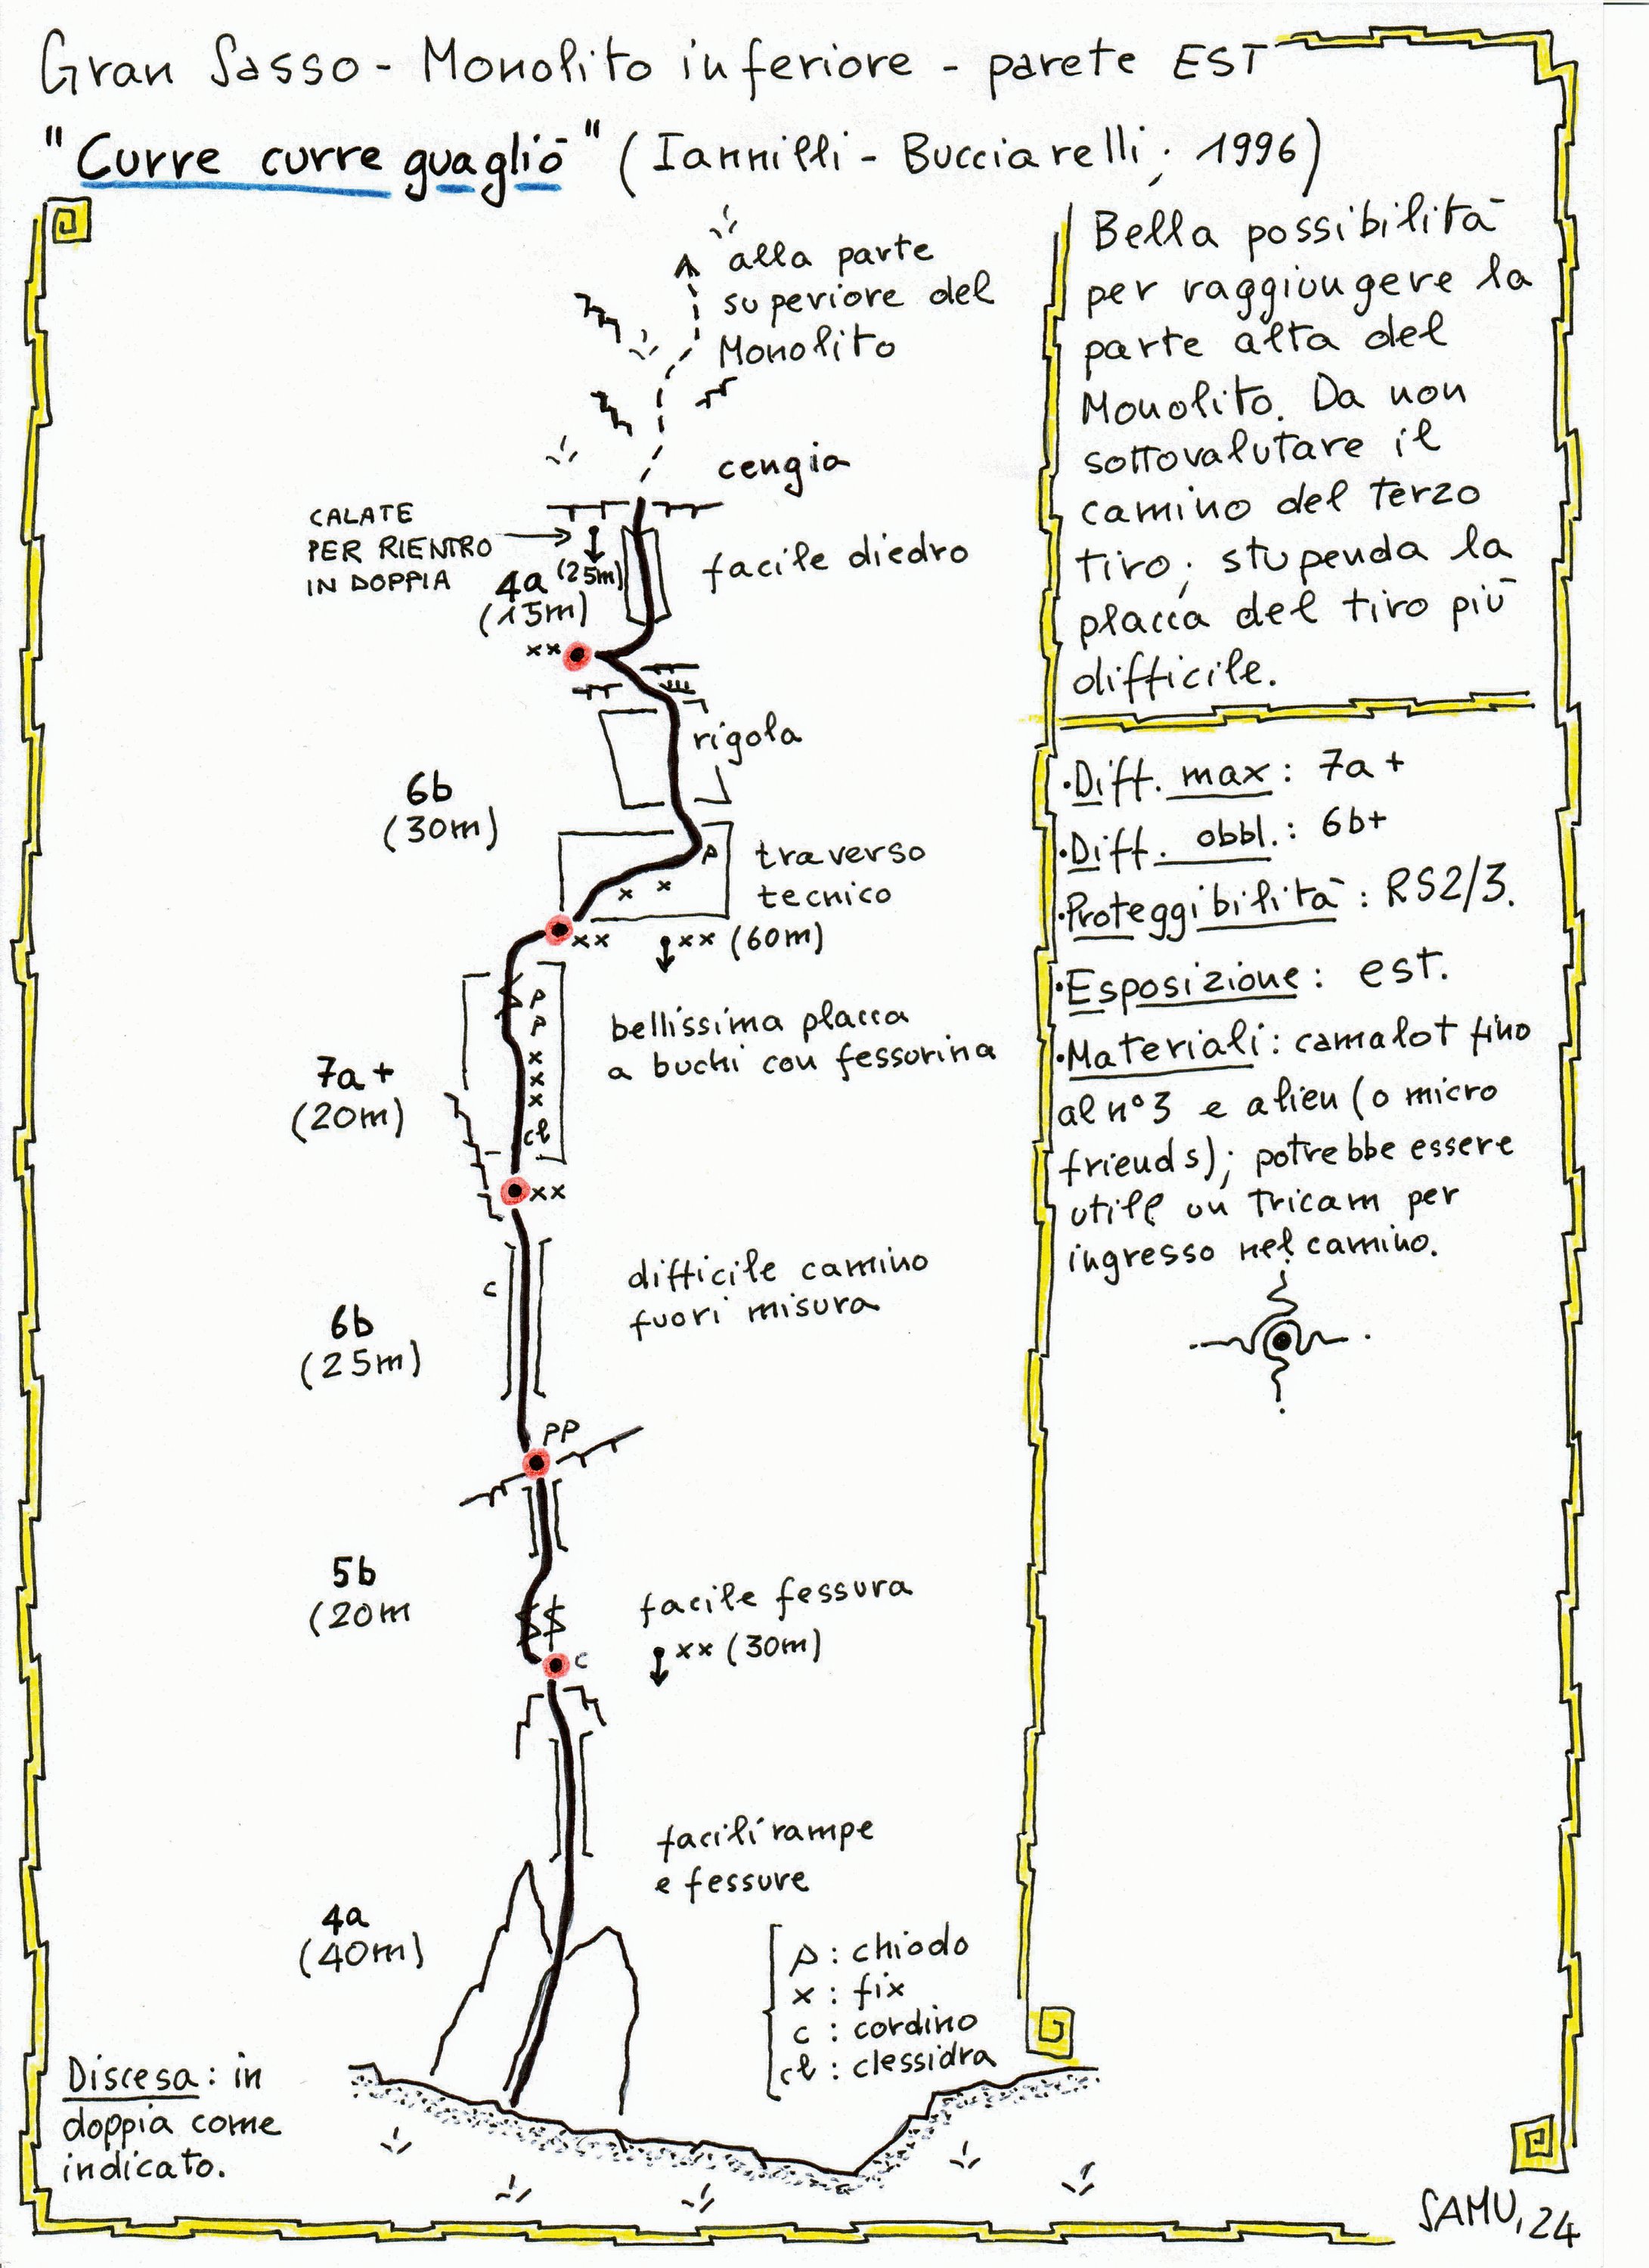 Gran Sasso - Monolito inferiore - parete EST
"Curre curre guagliò" (Iannilli - Bucciarelli; 1996)
alla parte
superiore del
Monolito
cengia
CALATE
PER RIENTRO
IN DOPPIA
(25m)
4a
(15m)
facile diedro
xx
rigola
6b
(30m)
p
x x
traverso
tecnico
xx
xx (60m)
p
p
x
x
x
cl
bellissima placca
a buchi con fessorina
7a+
(20m)
xx
c
difficile camino
fuori misura
6b
(25m)
PP
5b
(20m
facile fessura
xx (30m)
c
facili rampe
e fessure
4a
(40m)
p : chiodo
x : fix
c : cordino
cl : clessidra
Discesa: in
doppia come
indicato.
Bella possibilità
per raggiungere la
parte alta del
Monolito. Da non
sottovalutare il
camino del terzo
tiro; stupenda la
placca del tiro più
difficile.
·Diff. max: 7a+
·Diff. obbl.: 6b+
·Proteggibilità: RS2/3.
·Esposizione: est.
·Materiali: camalot fino
al n°3 e alien (o micro
friends); potrebbe essere
utile un tricam per
ingresso nel camino.
SAMU, 24